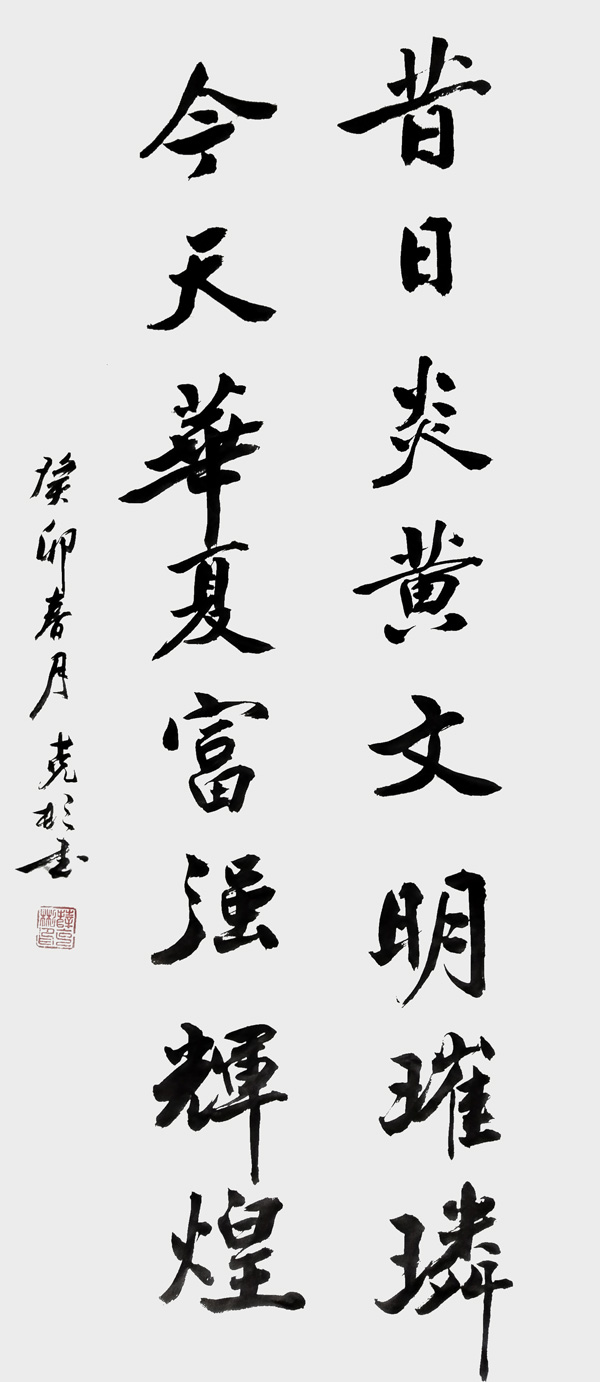 昔日炎黄文明璀璘
今天華夏富强輝煌
癸卯春月 克彬書